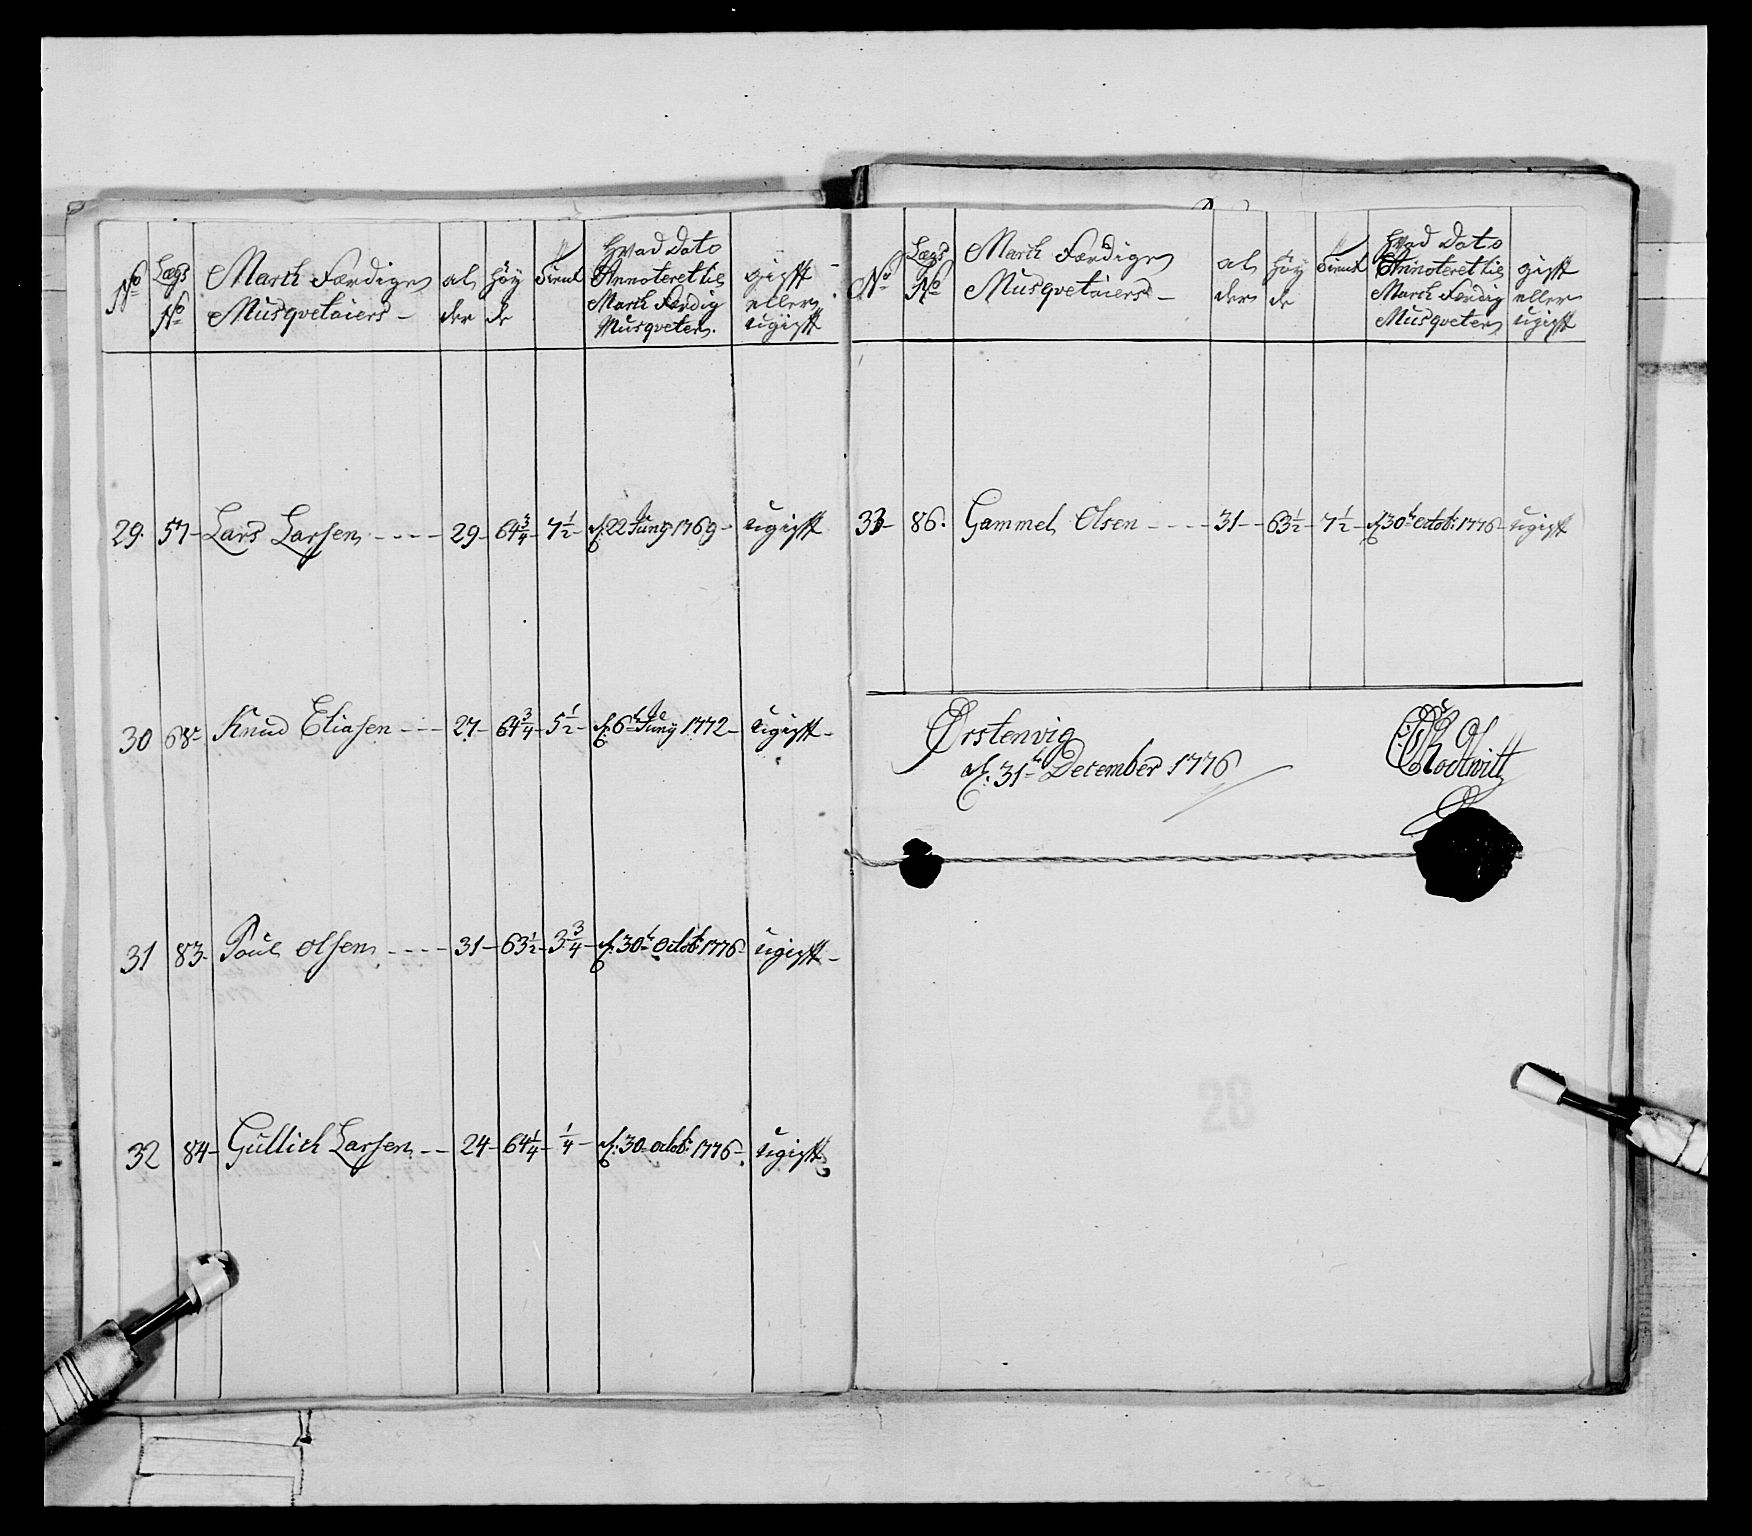 No
Lægs No
March Færdiges Musqveteiers
al der
höy de
tient
Hvad Dato Annoteret til March Færdig Musqveter.
gifft eller ugifft
29. 57 Lars Larsen 29 64 3/4 7 1/2 d: 22de Juny 1769 ugifft
30 68 Knud Eliasen 27 64 3/4 5 1/2 d: 6te Juny 1772 ugifft
31 83 Poul Olsen 31 63 1/2 3 3/4 d: 30t octob: 1776 ugifft
32 84 Gullich Larsen 24 64 1/4 1/4 d: 30 octob: 1776 ugifft
No
Lægs No
March Færdiges Musqveteiers
al der
höy de
tient
Hvad Dato Annoteret til March Færdig Musqveter
gifft eller ugifft
33 86. Gammel Olsen 31 63 1/2 7 1/2 d: 30t octob: 1776 ugifft
Ørstenvig
d: 31t December 1776
28